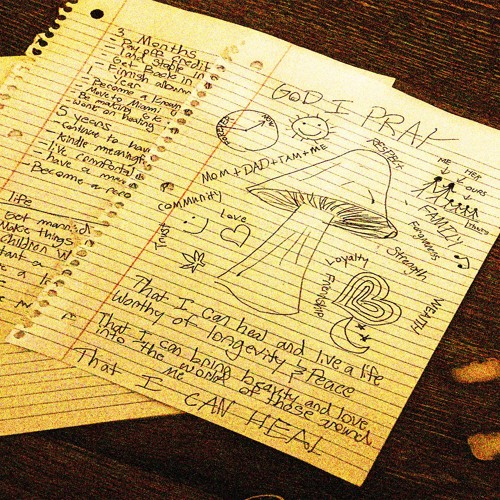 3 Months
- Pay off credit
- Land stable in
- Get Back in
- Finish
Year
- Become a known
- Move to Miami
- Be making 6k
- Work on healing
5 years
- Continue to
- Kindle meaningful
- live comfortab
- have a
Become a
life
Get married
Make things
children w
GOD I PRAY
PATIENCE
RESPECT
MOM + DAD + TAM + ME
ME
HER
OURS
FAMILY
COMMUNITY
Love
Trust
Forgiveness
Strength
Loyalty
Friendship
WEALTH
That I can heal and live a life
Worthy of longevity & Peace
That I can bring beauty and love
into the world of those around
me
That I CAN HEAL